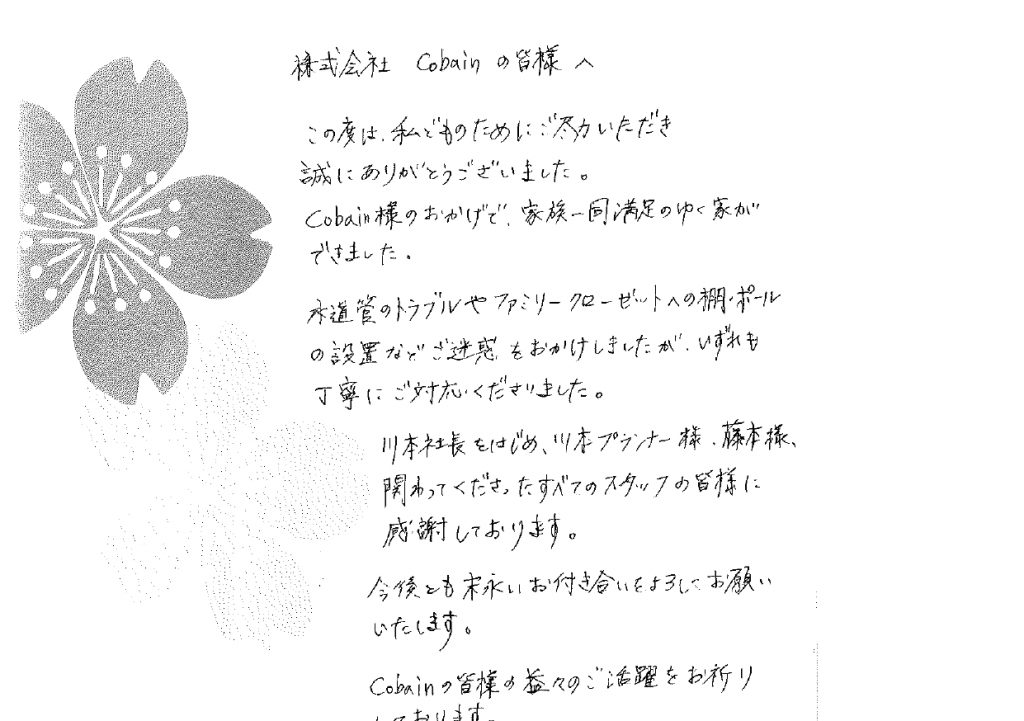 株式会社 Cobainの皆様へ
この度は、私どものためにご尽力いただき
誠にありがとうございました。
Cobain様のおかげで、家族一同満足のゆく家が
できました。
水道管のトラブルやファミリークローゼットへの棚・ポール
の設置などご迷惑をおかけしましたが、いずれも
丁寧にご対応くださりました。
川本社長をはじめ、川本プランナー様、藤本様、
関わってくださったすべてのスタッフの皆様に
感謝しております。
今後とも末永いお付き合いをよろしくお願い
いたします。
Cobainの皆様の益々のご活躍をお祈り
しております。